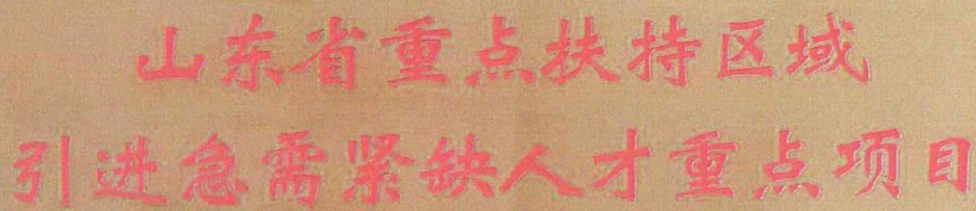 山东省重点扶持区域
引进急需紧缺人才重点项目